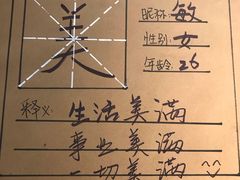 美
昵称: 敏
性别: 女
年龄: 26
释义: 生活美满
事业美满
一切美满